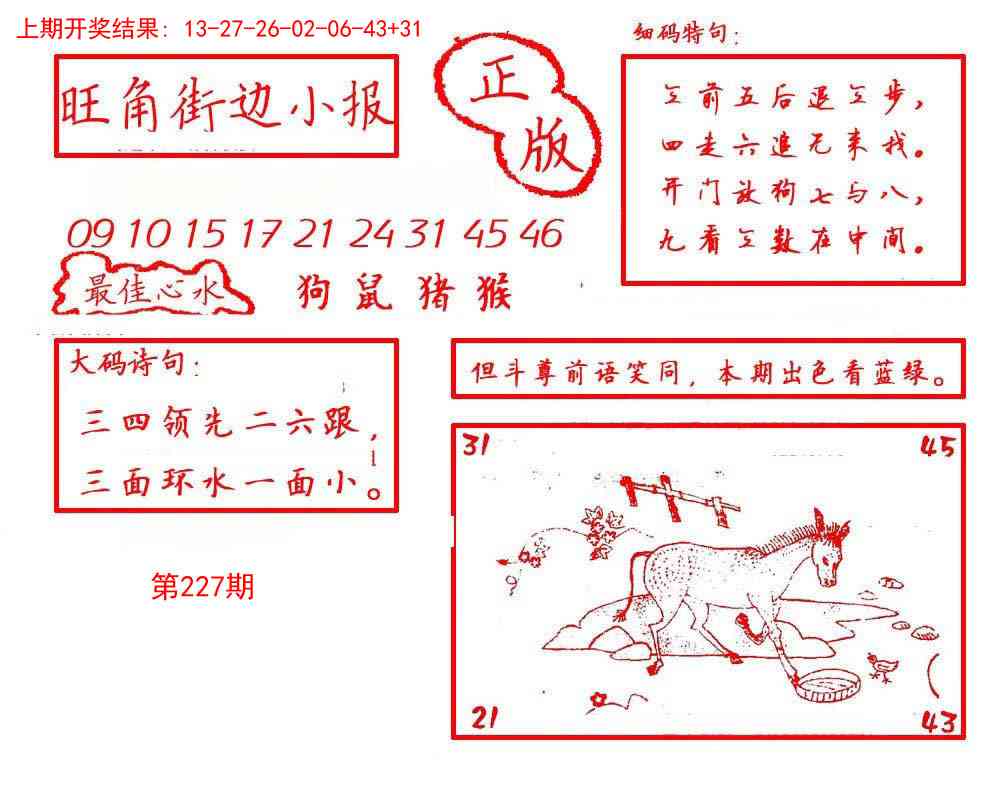 上期开奖结果：13-27-26-02-06-43+31
细码特句：
旺角街边小报
正版
三前五后退三步，
四走六追无来找。
开门放狗七与八，
九看三数在中间。
09 10 15 17 21 24 31 45 46
最佳心水
狗鼠猪猴
大码诗句：
三四领先二六跟，
三面环水一面小。
但斗尊前语笑同，本期出色看蓝绿。
31 45
第227期
21 43